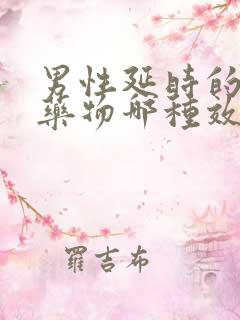 男性延時的
藥物哪種效
羅吉布